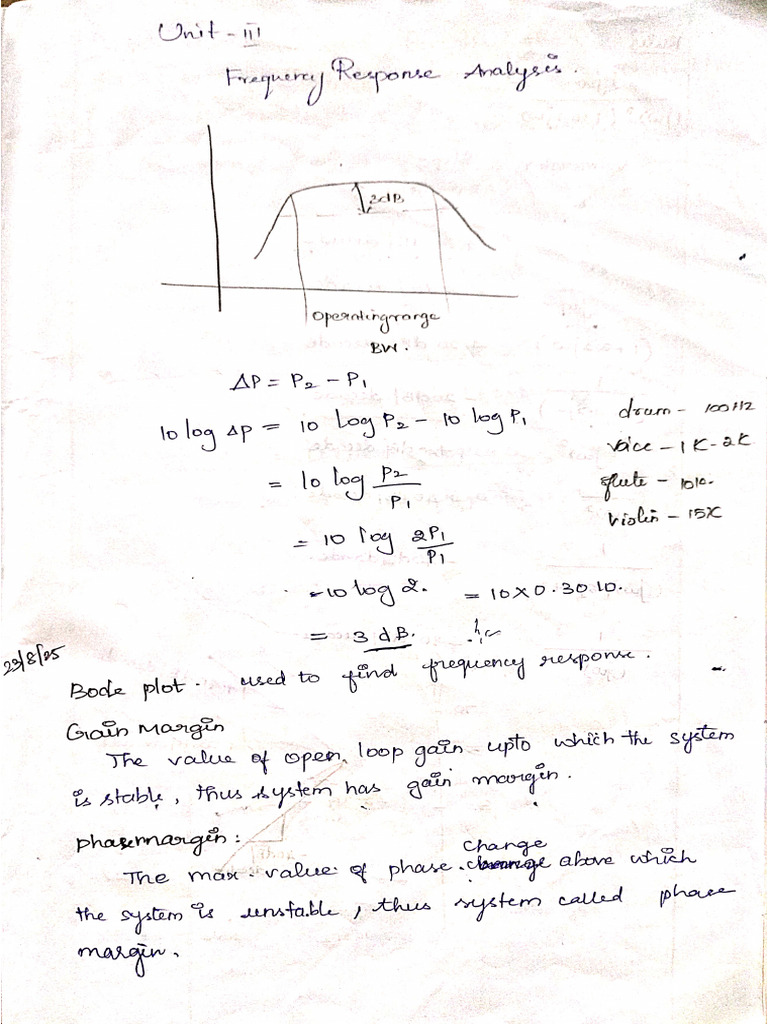 Unit - III
Frequency Response Analysis.
3dB
Operating range
BW.
ΔP = P2 - P1
10 log ΔP = 10 log P2 - 10 log P1
= 10 log P2/P1
= 10 log 2P1/P1
= 10 log 2. = 10 X 0.3010.
= 3 dB.
drum - 100Hz
voice - 1K-2K
flute - 10K.
violin - 15K
23/8/25
Bode plot. used to find frequency response.
Gain Margin
The value of open loop gain upto which the system
is stable, thus system has gain margin.
phasemargin:
The max. value of phase change above which
the system is unstable, thus system called phase
margin.